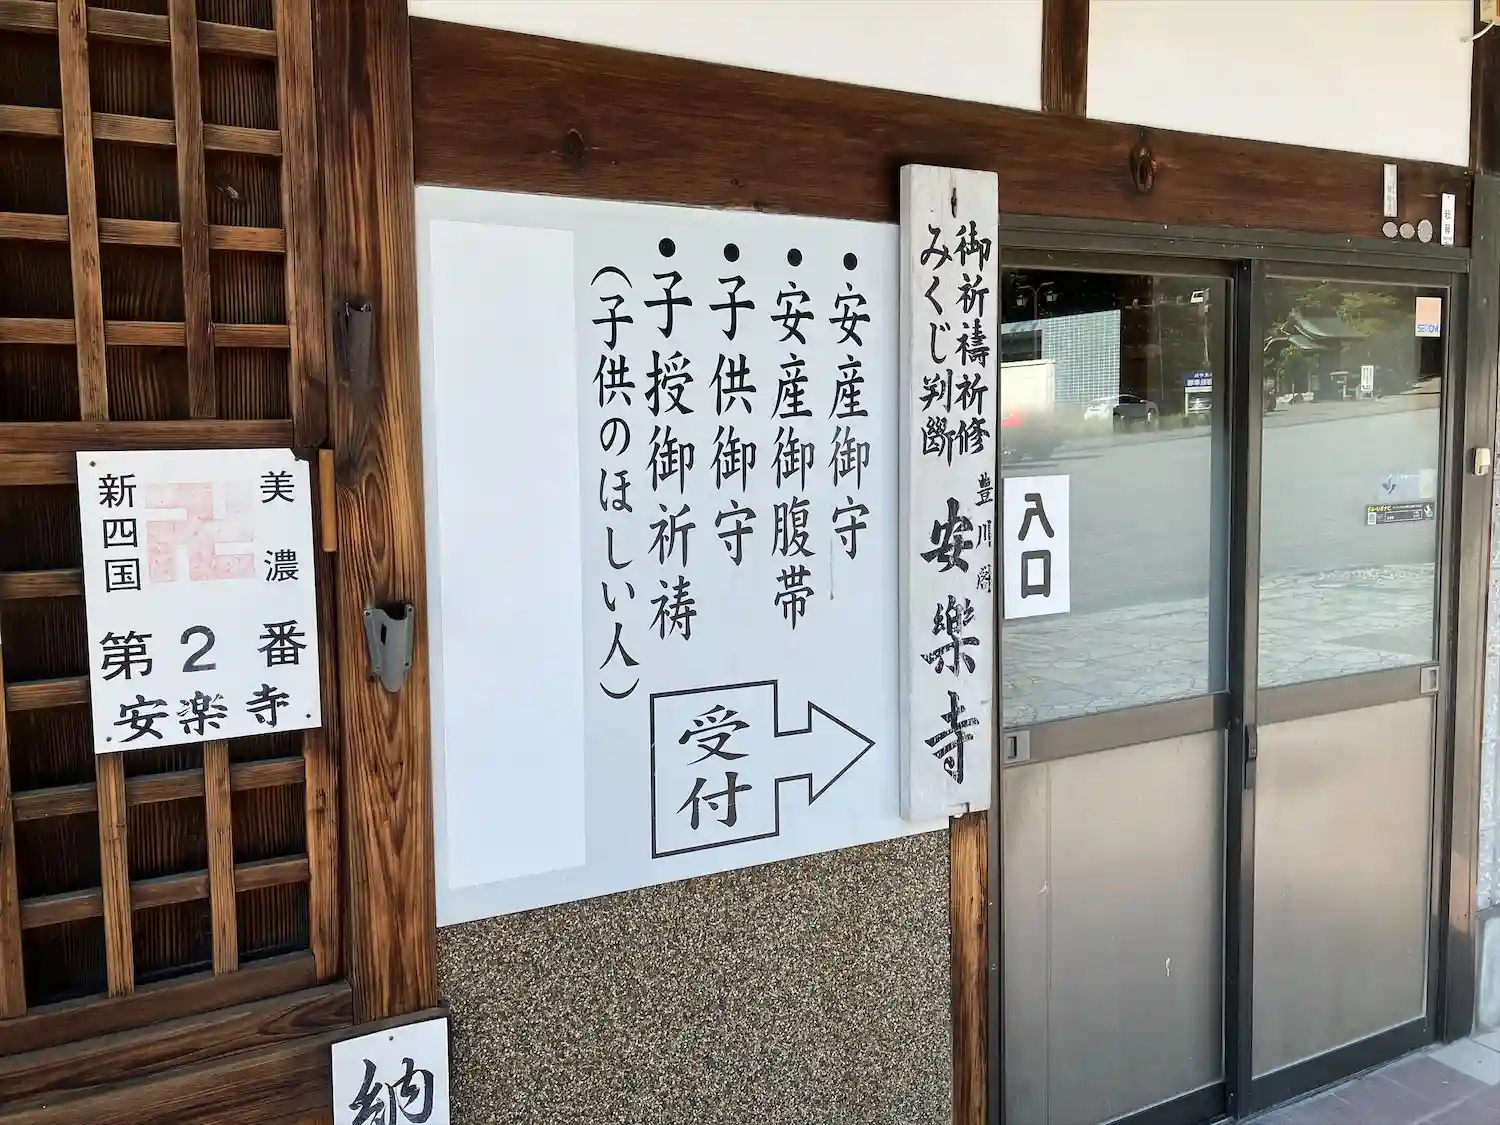 美濃
新四国
第2番
安楽寺
納
●安産御守
●安産御腹帯
●子供御守
●子授御祈祷
(子供のほしい人)
受付
御祈禱祈修
みくじ判斷
豊川閣
安樂寺
入口
SECOM